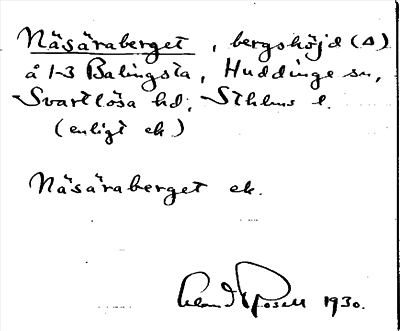 Näsäraberget, bergshöjd (Δ)
å 1-3 Balingsta, Huddinge sn,
Svartlösa hd, Sthlms l.
(enligt ek.)
Näsäraberget ek.
1930.